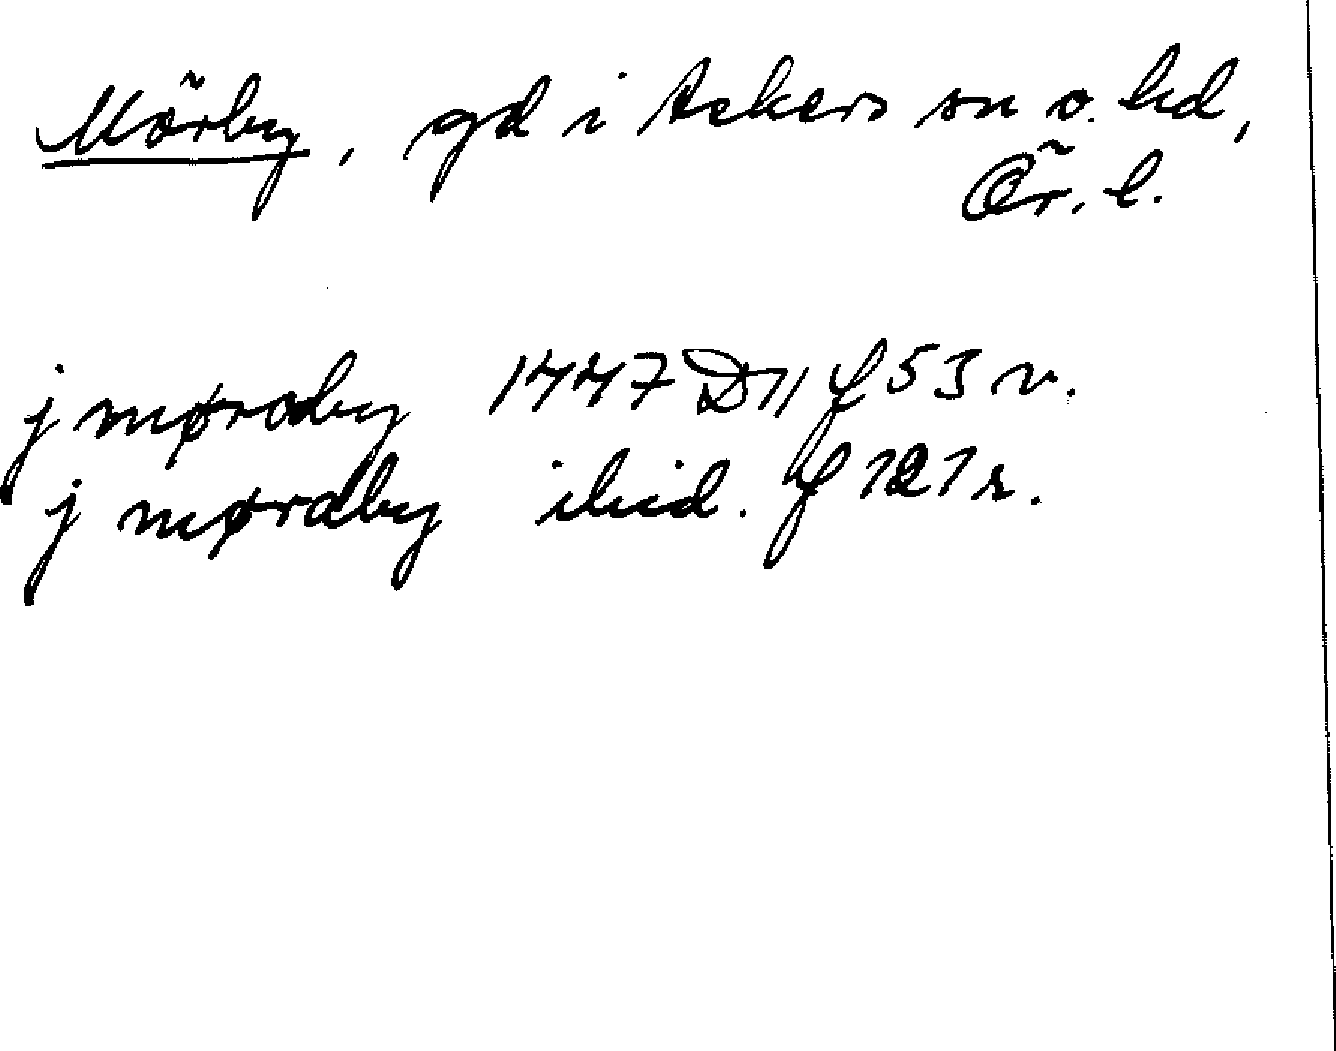 Mörby, gd i Askers sn o. hd,
Ör. l.
j møraby 1447 D11 f 53 v.
j møraby ibid. f 121 r.